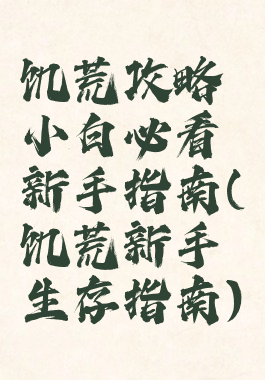 饥荒攻略
小白必看
新手指南(
饥荒新手
生存指南)